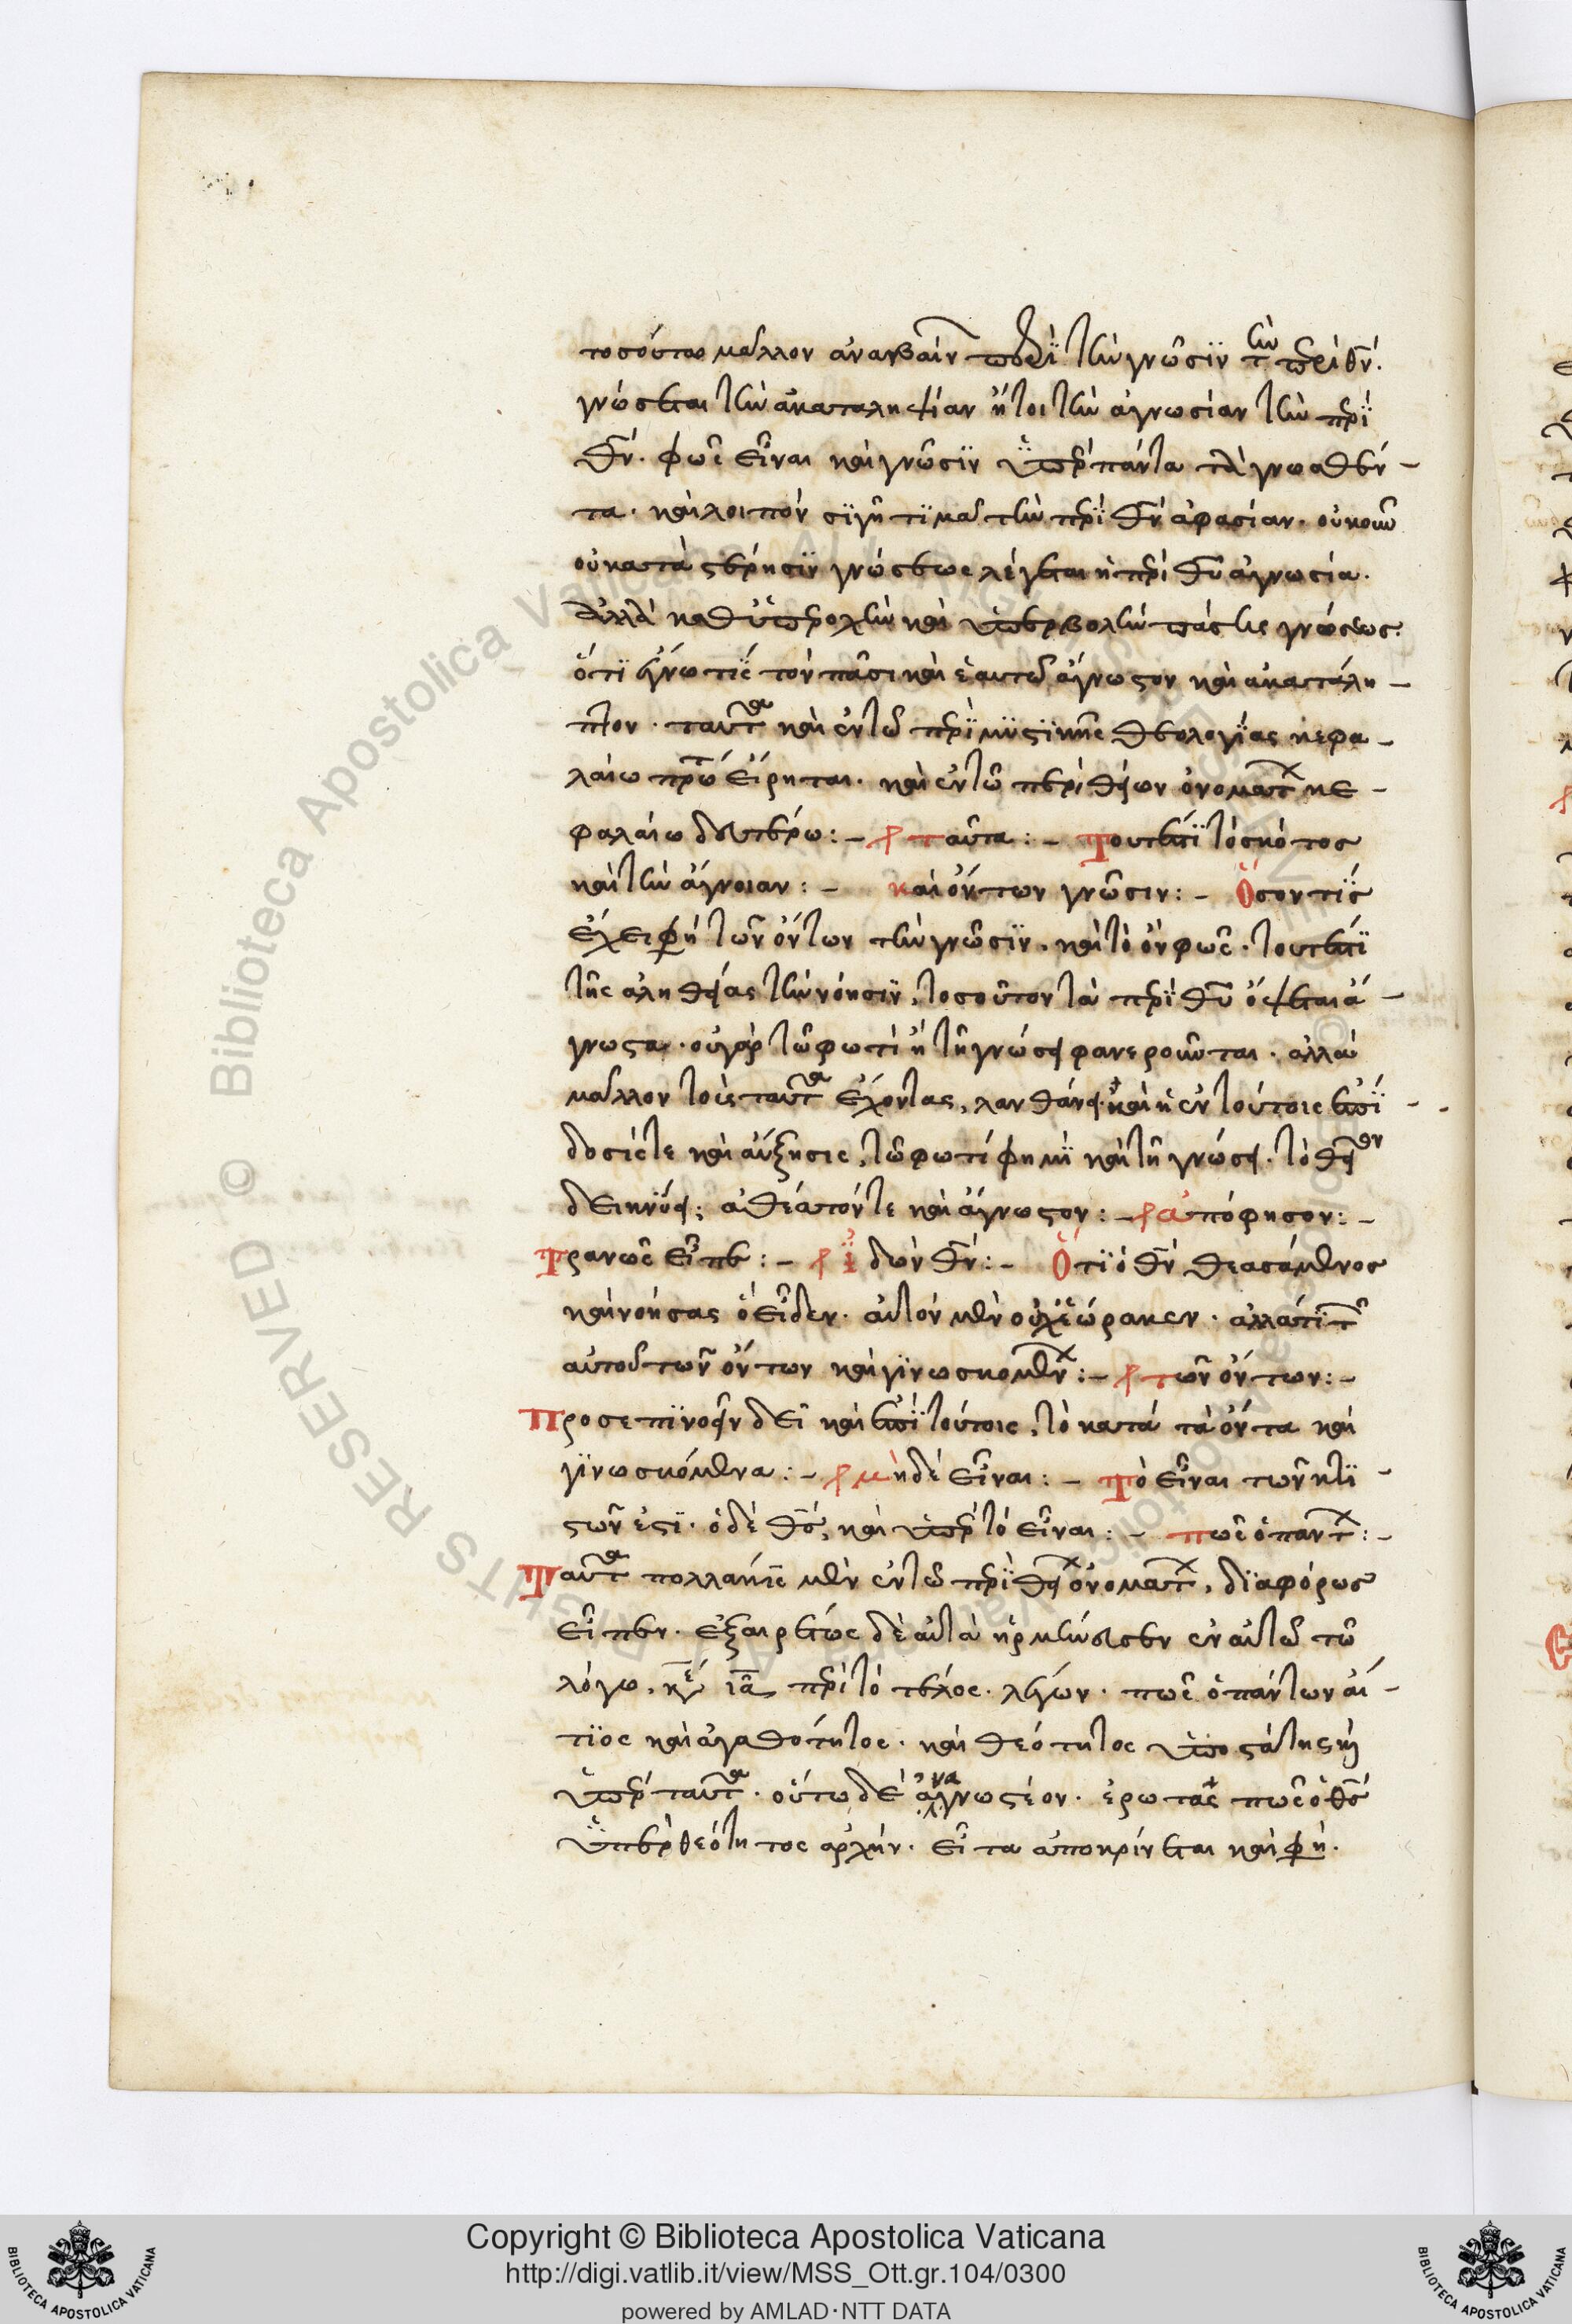 τοσούτω μᾶλλον ἀναβαίνει περὶ τὴν γνῶσιν τὴν περὶ θεοῦ.
γνώσεται τὴν ἀκαταληψίαν ἤτοι τὴν ἀγνωσίαν τὴν περὶ
θεοῦ. φῶς εἶναι καὶ γνῶσιν ὑπὲρ πάντα τὰ γνωσθέν-
τα. καὶ λοιπὸν σιγῇ τιμᾶ τὴν περὶ θεοῦ ἀφασίαν. οὐκοῦν
οὐ κατὰ στέρησιν γνώσεως λέγεται ἡ περὶ θεοῦ ἀγνωσία.
ἀλλὰ καθ' ὑπεροχὴν καὶ ὑπερβολὴν πάσης γνώσεως.
ὅτι ἔγνω τις τὸν πᾶσι καὶ ἑαυτῶ ἄγνωστον καὶ ἀκατάλη-
πτον. ταῦτα καὶ ἐν τῶ περὶ μυστικῆς θεολογίας κεφα-
λαίω πρώτω εἴρηται. καὶ ἐν τῶ περὶ θείων ὀνομάτων κε-
φαλαίω δευτέρω:- ταῦτα:- Τουτέστι τὸ σκότος
καὶ τὴν ἄγνοιαν:- καὶ ὄντων γνῶσιν:- Ὅσον τίς
ἔχει φησὶ τῶν ὄντων τὴν γνῶσιν. καὶ τὸ ὂν φῶς. τουτέστι
τῆς ἀληθείας τὴν νόησιν, τοσοῦτον τὰ περὶ θεοῦ ὄψεται ἄ-
γνωστα. οὐ γὰρ τῶ φωτὶ ἢ τῆ γνώσει φανεροῦνται. ἀλλὰ
μᾶλλον τοὺς ταῦτα ἔχοντας, λανθάνει. καὶ ἡ ἐν τούτοις ἐπί-
δοσίς τε καὶ αὔξησις, τῶ φωτί φημι καὶ τῆ γνώσει. τὸ θεῖον
δεικνύει, ἀθέατόν τε καὶ ἄγνωστον:- ἀπόφησον:-
Τρανῶς εἶπε:- ἰδὼν θεόν:- Ὅτι ὁ θεὸν θεασάμενος
καὶ νοήσας ὃ εἶδεν. αὐτὸν μὲν οὐχ ἑώρακεν. ἀλλά τι τῶν
αὐτοῦ τῶν ὄντων καὶ γινωσκομένων:- τῶν ὄντων:-
Προσεπινοεῖν δεῖ καὶ ἐπὶ τούτοις, τὸ κατὰ τὰ ὄντα καὶ
γινωσκόμενα:- μὴ δὲ εἶναι:- Τὸ εἶναι τῶν κτι-
στῶν ἐστι. ὁ δὲ θεός, καὶ ὑπὲρ τὸ εἶναι:- πῶς ὁ πάντων:-
Ταῦτα πολλάκις μὲν ἐν τῶ περὶ θείων ὀνομάτων, διαφόρως
εἶπεν. ἐξαιρέτως δὲ αὐτὰ ἡρμήνευσεν ἐν αὐτῶ τῶ
λόγω, κεφ ια περὶ τὸ τέλος. λέγων. πῶς ὁ πάντων αἴ-
τιος καὶ ἀγαθότητος. καὶ θεότητος ὑποστάτης ἦ
ὑπὲρ ταῦτα. οὕτω δὲ ἀναγνωστέον. ἐρωτᾶς πῶς ὁ θεὸς
ὑπὲρ θεότητος ἀρχήν. εἶτα ἀποκρίνεται καὶ φησί.
Copyright © Biblioteca Apostolica Vaticana
http://digi.vatlib.it/view/MSS_Ott.gr.104/0300
powered by AMLAD·NTT DATA